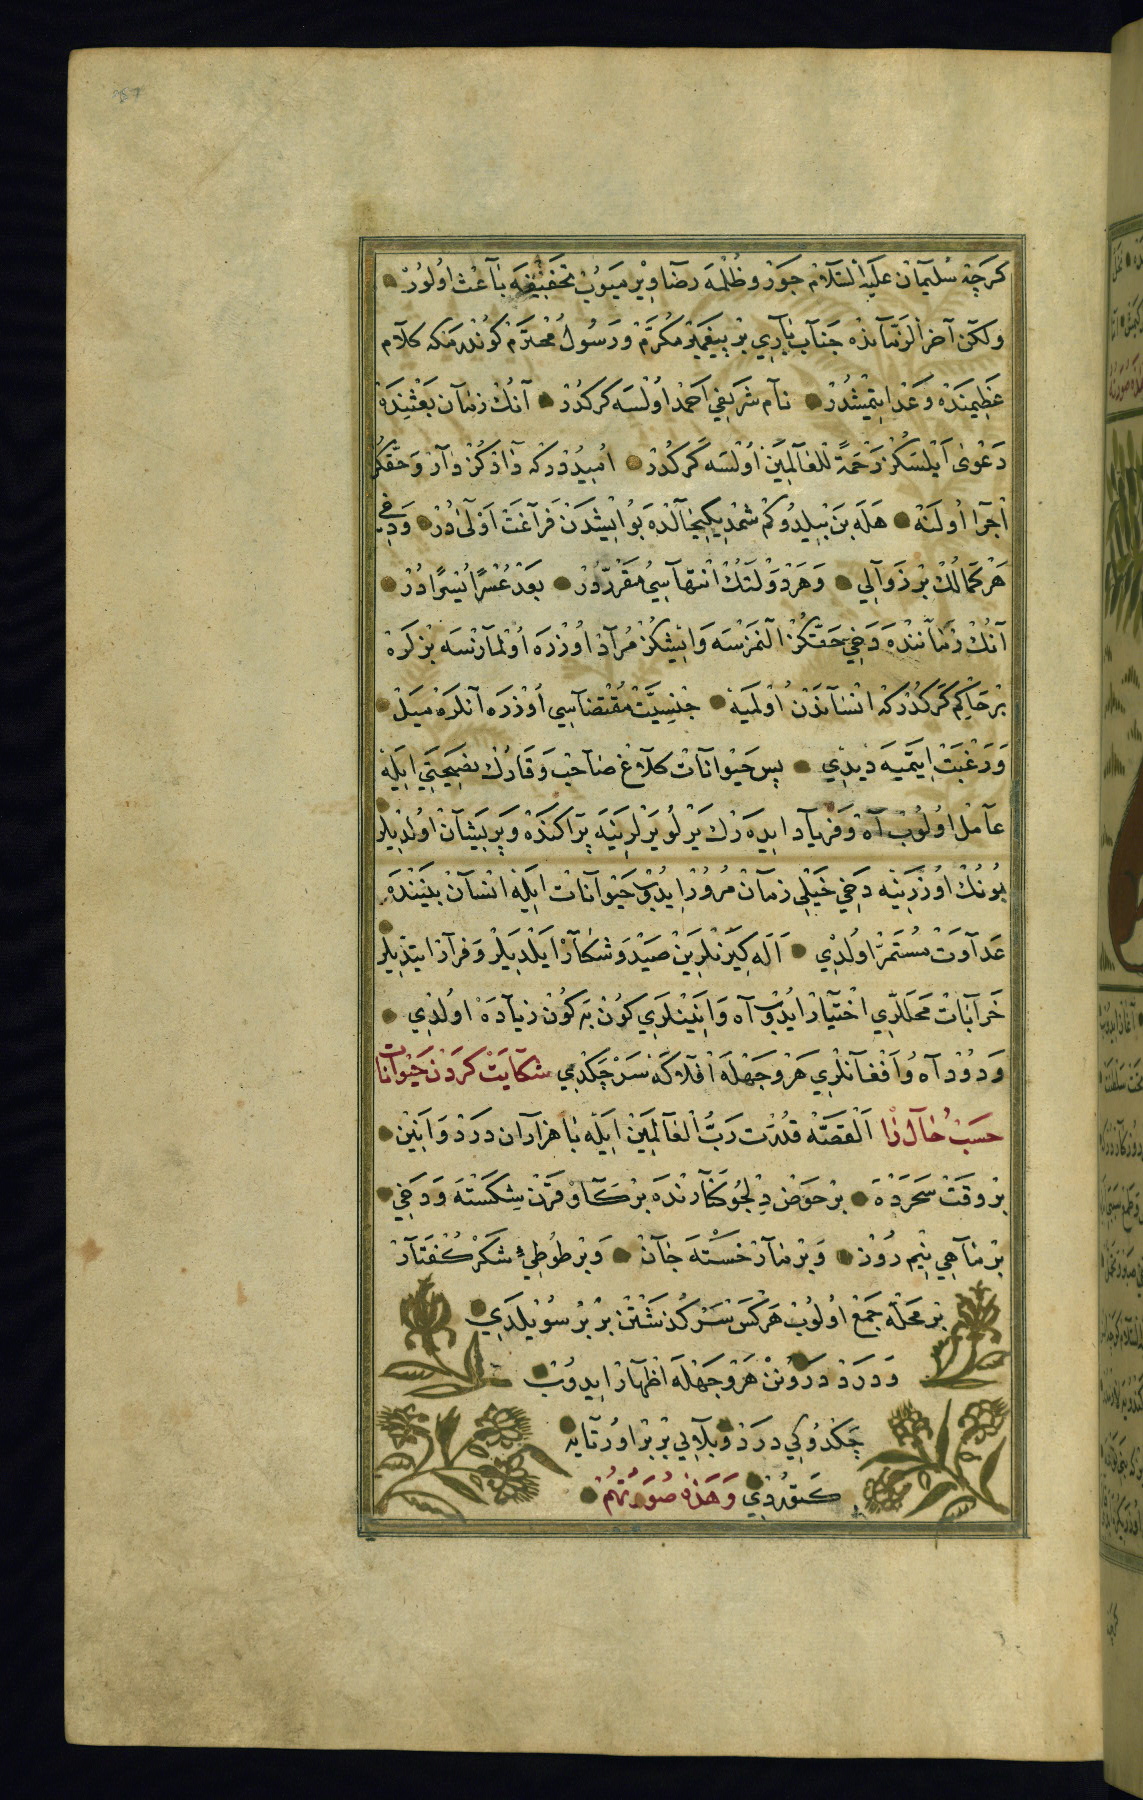 كرچه سليمان عليه السلام جور و ظلمه رضا ويرميوب تخفيفه باعث اولور
ولكن آخر الزمانده جناب باري بر پيغمبر مكرم و رسول محترم كوندرمكه كلام
عظيمنده وعد ايتمشدر نام شريفي احمد اولسه كركدر آنك زمان بعثنده
دعوى ايلسكز رحمة للعالمين اولسه كركدر اميددركه دادكز وار وحقكز
اجرا اولنه هله بن بيلدوكم شمديكيحالده بو ايشدن فراغت اولى در ودخي
هر كمالك بر زوالي وهر دولتك انتهاسي مقرردر بعد عسرا يسرا در
آنك زماننده دخي حقكز النمزسه وايشكز مراد اوزره اولمازسه بزلره
بر حاكم كركدركه انساندن اولميه جنسيت مقتضاسي اوزره آنلره ميل
ورغبت ايتميه ديدي پس حيوانات كلاغ صاحب وقارك نصيحتي ايله
عامل اولوب آه وفرياد ايدهرك يرلو يرلرينه پراكنده وپريشان اولديلر
بونك اوزرينه دخي خيلي زمان مرور ايدوب حيوانات ايله انسان بيننده
عداوت مستمر اولدي اله كيرنلرين صيد وشكار ايلديلر وفرار ايتديلر
خرابات محللري اختيار ايدوب آه وانينلري كون به كون زياده اولدي
ودود آه وافغانلري هر وجهله افلاكه سر چكدي شكايت كردن حيوانات
حسب حال را القصه قدرت رب العالمين ايله با هزاران درد وانين
بر وقت سحرده بر حوض دلجو كنارنده بر كاو قرن شكسته ودخي
بر ماهي نيم روز وبر مار خسته جان وبر طوطئ شكر كفتار
بر محله جمع اولوب هر كس سر كذشتن بر بر سويلدي
ودرد درونن هر وجهله اظهار ايدوب
چكدوكي درد وبلايي بر بر اورتايه
كتوردي وهذه صورتهم